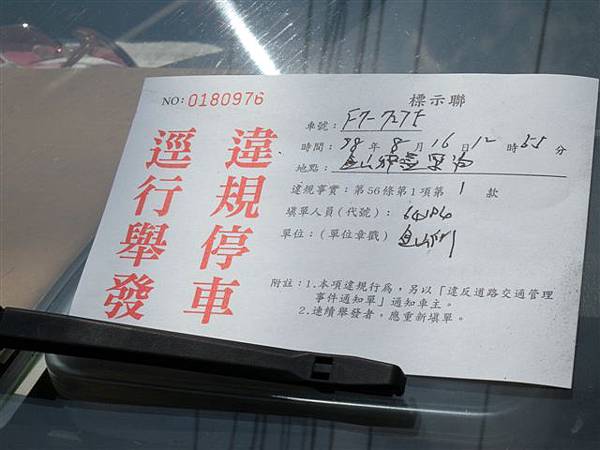 NO: 0180976
標示聯
違規停車
逕行舉發
車號：F7-7275
時間：98年8月16日12時55分
地點：
違規事實：第56條第1項第1款
填單人員（代號）：
單位：（單位章戳）
附註：1.本項違規行為，另以「違反道路交通管理
事件通知單」通知車主。
2.連續舉發者，應重新填單。